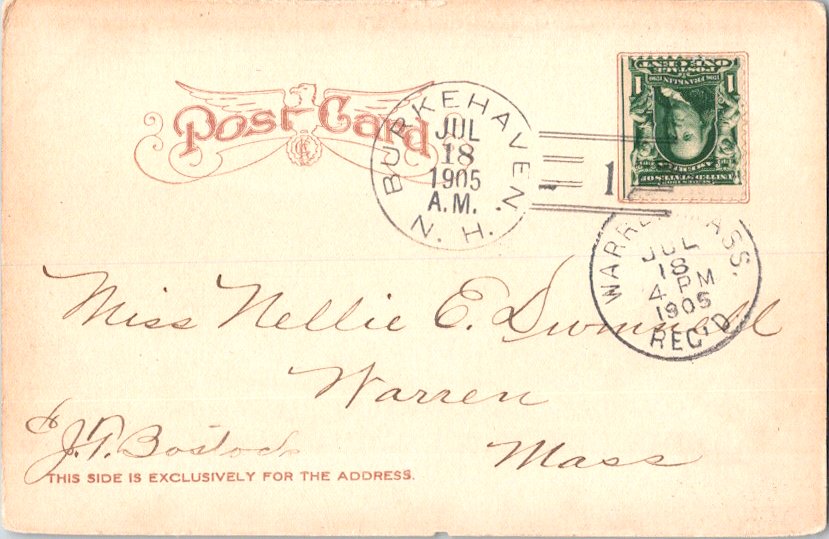 Post Card
BURKEHAVEN N. H.
JUL
18
1905
A.M.
1
ONE CENT
POSTAGE
1 1
UNITED STATES OF
AMERICA
WARREN MASS.
JUL
18
4 PM
1905
REC'D
Miss Nellie E.
Warren
Mass
J. T. Bostock
THIS SIDE IS EXCLUSIVELY FOR THE ADDRESS.